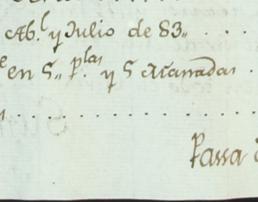 Ab.l y Julio de 83,, . . . .
e en 5,, p.las y 5 Aranadas .
. . . . . . . . . . . . . . .
Passa